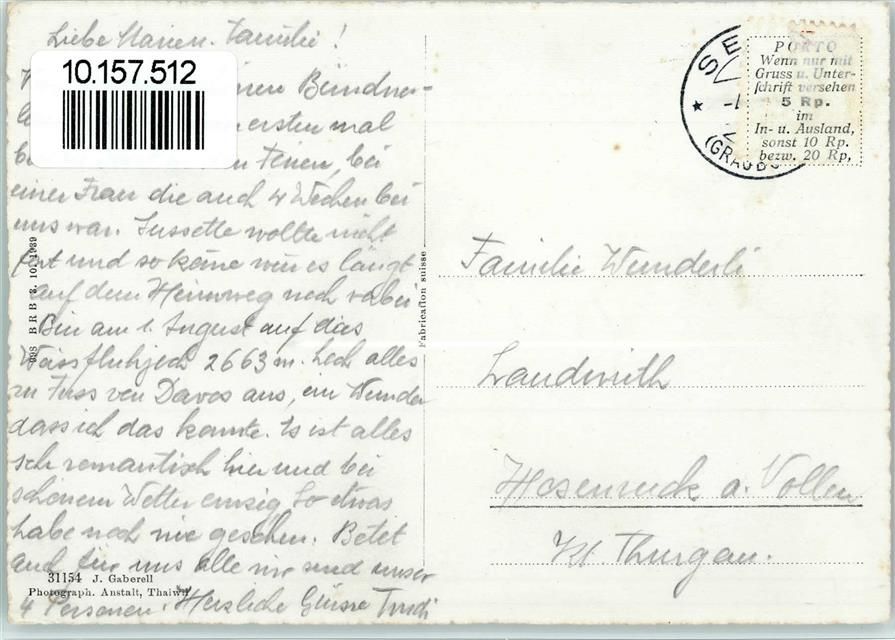 Liebe Marien-Familie!
10.157.512
Bündner-
ersten mal
Ferien, bei
einer Frau die auch 4 Wochen bei
uns war. Sussette wollte nicht
fort und so käme wir es längt
auf dem Heimweg noch vorbei
Bin am 1. August auf das
Weissfluhjoch 2663 m. hoch alles
zu Fuss von Davos aus, ein Wunder
dass ich das konnte. Es ist alles
sehr romantisch hier und bei
schönem Wetter einzig So etwas
habe noch nie gesehen. Betet
auch für uns alle wir sind unser
4 Personen. Herzliche Grüsse Trudi
31154 J. Gaberell
Photograph. Anstalt, Thalwil
998 BRB 3. 10. 1939
Fabrication suisse
SE
(GRAUB
PORTO
Wenn nur mit
Gruss u. Unter-
schrift versehen
5 Rp.
im
In- u. Ausland,
sonst 10 Rp.
bezw. 20 Rp,
Familie Wunderli
Landwirth
Hosenruck a. Nollen
Kt. Thurgau.